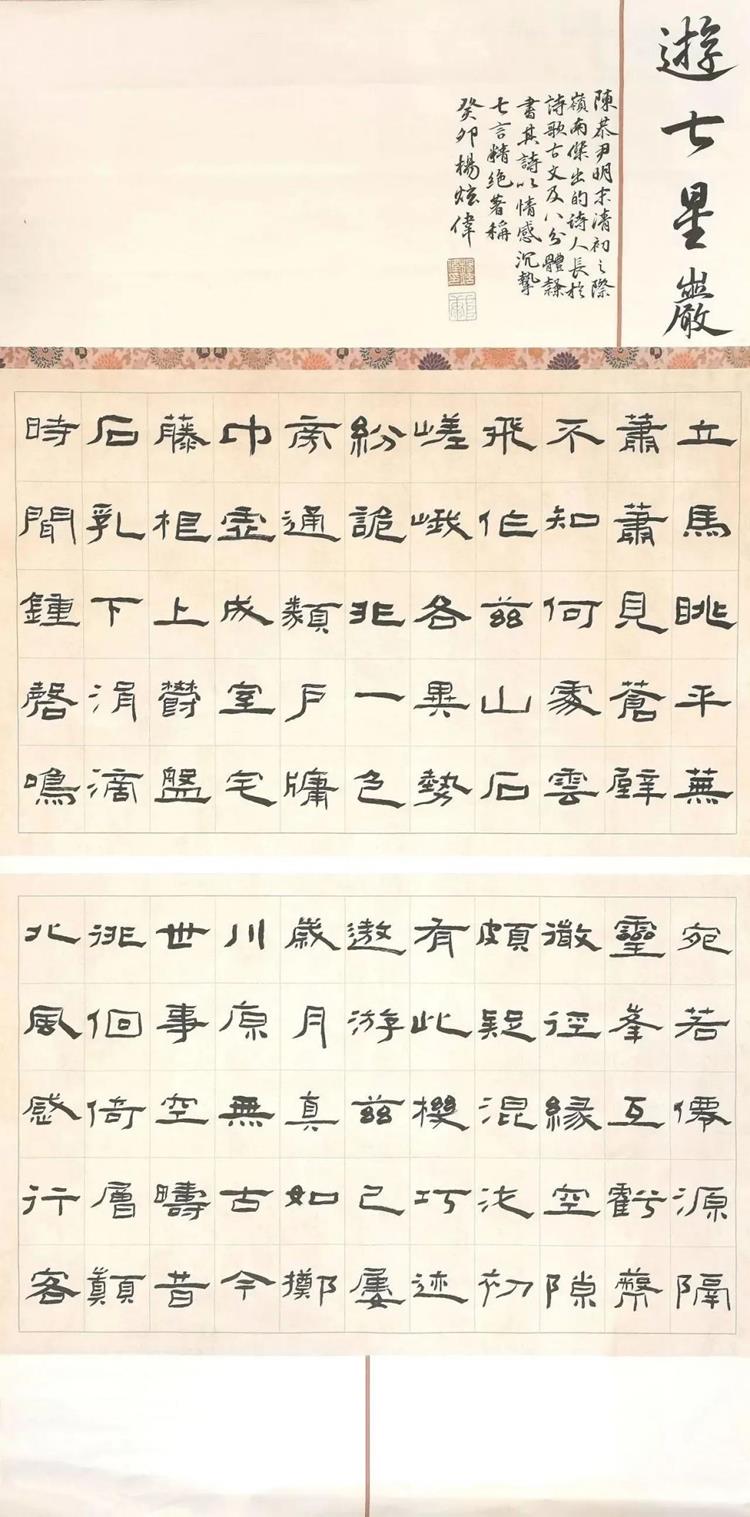 遊七星巖
陳恭尹明末清初之際
嶺南傑出的詩人長於
詩歌古文及八分體隸
書其詩以情感沉摯
七言精絕著稱
癸卯楊炫偉
立馬眺平蕪
蕭蕭見蒼壁
不知何處雲
飛作茲山石
嵯峨各異勢
紛詭非一色
旁通類戶牖
中虛成室宅
藤相上鬱盤
石乳下涓滴
時聞鍾磬鳴
宛若僊源隔
靈峯互虧蔽
微徑緣空隙
頗疑混沌初
有此機巧迹
遨游茲已屢
歲月真如擲
川原無古今
世事空疇昔
徘徊倚層顛
北風感行客